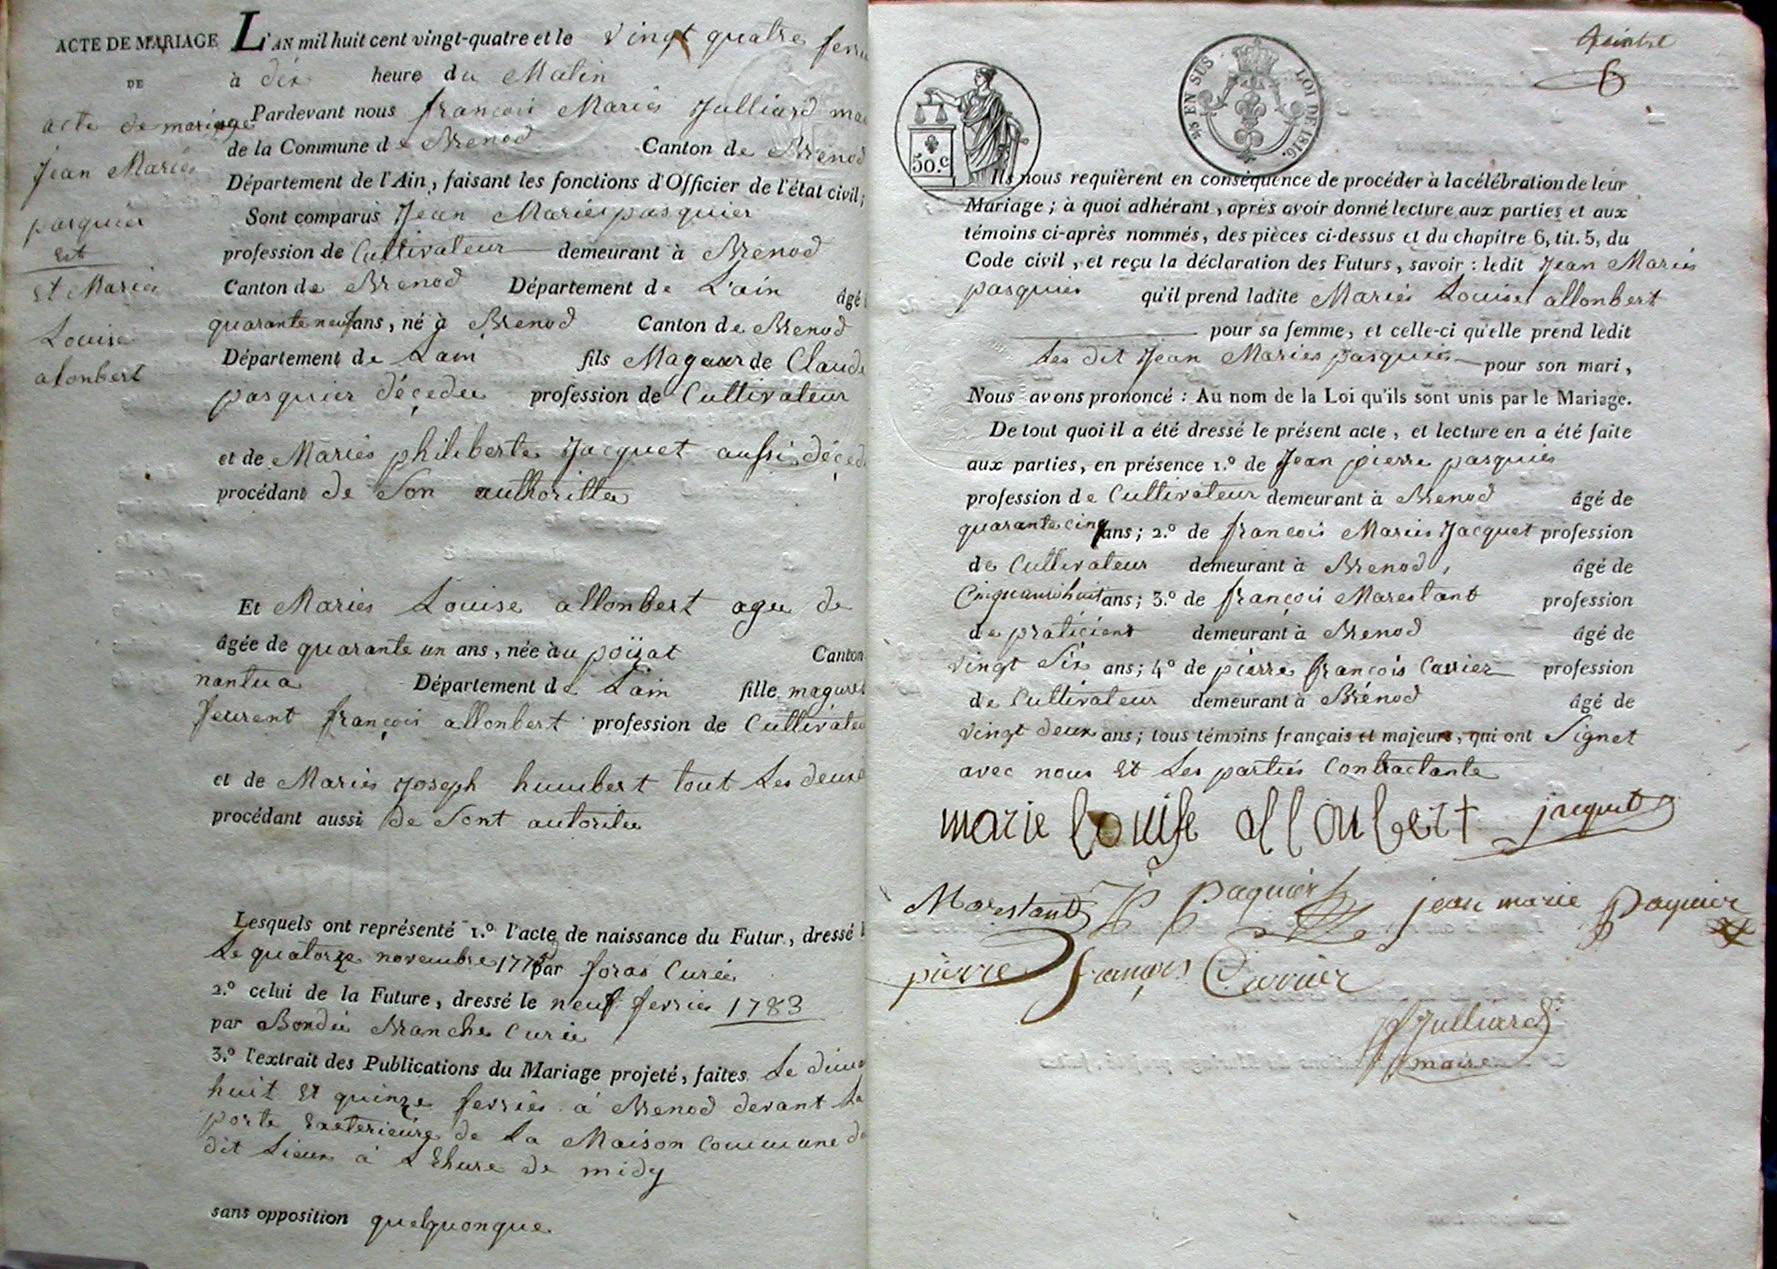 ACTE DE MARIAGE
DE
acte de mariage
Jean Maries
pasquier
Et
Et Maries
Louise
alonbert
L'AN mil huit cent vingt-quatre et le vingt quatre
à dix heure du Matin
Pardevant nous françois Maries Julliard
de la Commune de Brenod Canton de Brenod
Département de l'Ain, faisant les fonctions d'Officier de l'état civil;
Sont comparus Jean Maries pasquier
profession de Cultivateur demeurant à Brenod
Canton de Brenod Département de L'ain âgé
quarante neuf ans, né à Brenod Canton de Brenod
Département de Lain fils Mageur de Claude
pasquier déçedée profession de Cultivateur
et de Maries philiberte Jacquet aussi
procédant de Son authorittée
Et Maries Louise allonbert agee de
âgée de quarante un ans, née à au poizat Canton
nantua Département de Lain fille
feurent françois allonbert profession de
et de Maries Joseph humbert tout Les deuxe
procédant aussi de Sont autoritée
Lesquels ont représenté 1.º l'acte de naissance du Futur, dressé
Le quatorze novembre par Joras Curée
2.º celui de la Future, dressé le neuf ferries 1783
par Bondée Branche Curée
3.º l'extrait des Publications du Mariage projeté, faites Le
huit Et quinze ferries à Brenod devant La
porte Exeterieure de La Maison Commune
dit Lieux à L'Ehure de midy
sans opposition quelquonque
6
50.c
EN SUS LOI DE 1816.
Ils nous requièrent en conséquence de procéder à la célébration de leur
Mariage; à quoi adhérant, après avoir donné lecture aux parties et aux
témoins ci-après nommés, des pièces ci-dessus et du chapitre 6, tit. 5, du
Code civil, et reçu la déclaration des Futurs, savoir: ledit Jean Maries
pasquier qu'il prend ladite Maries Louise allonbert
pour sa femme, et celle-ci qu'elle prend ledit
Les dit Jean Maries pasquier pour son mari,
Nous avons prononcé: Au nom de la Loi qu'ils sont unis par le Mariage.
De tout quoi il a été dressé le présent acte, et lecture en a été faite
aux parties, en présence 1.º de Jean pierre pasquier
profession de Cultivateur demeurant à Brenod âgé de
quarante cinq ans; 2.º de françois Maries Jacquet profession
de Cultivateur demeurant à Brenod, âgé de
Cinquante huit ans; 3.º de françois Marestant profession
de praticient demeurant à Brenod âgé de
vingt Six ans; 4º de pierre françois Carrier profession
de Cultivateur demeurant à Brénod âgé de
vingt deux ans; tous témoins français et majeurs, qui ont Signet
avec nous Et Les parties Contractante
marie louise allonbert jacquet
Marestant JP Paquier jean marie Paquier
pierre françois Carrier
Julliard
maire